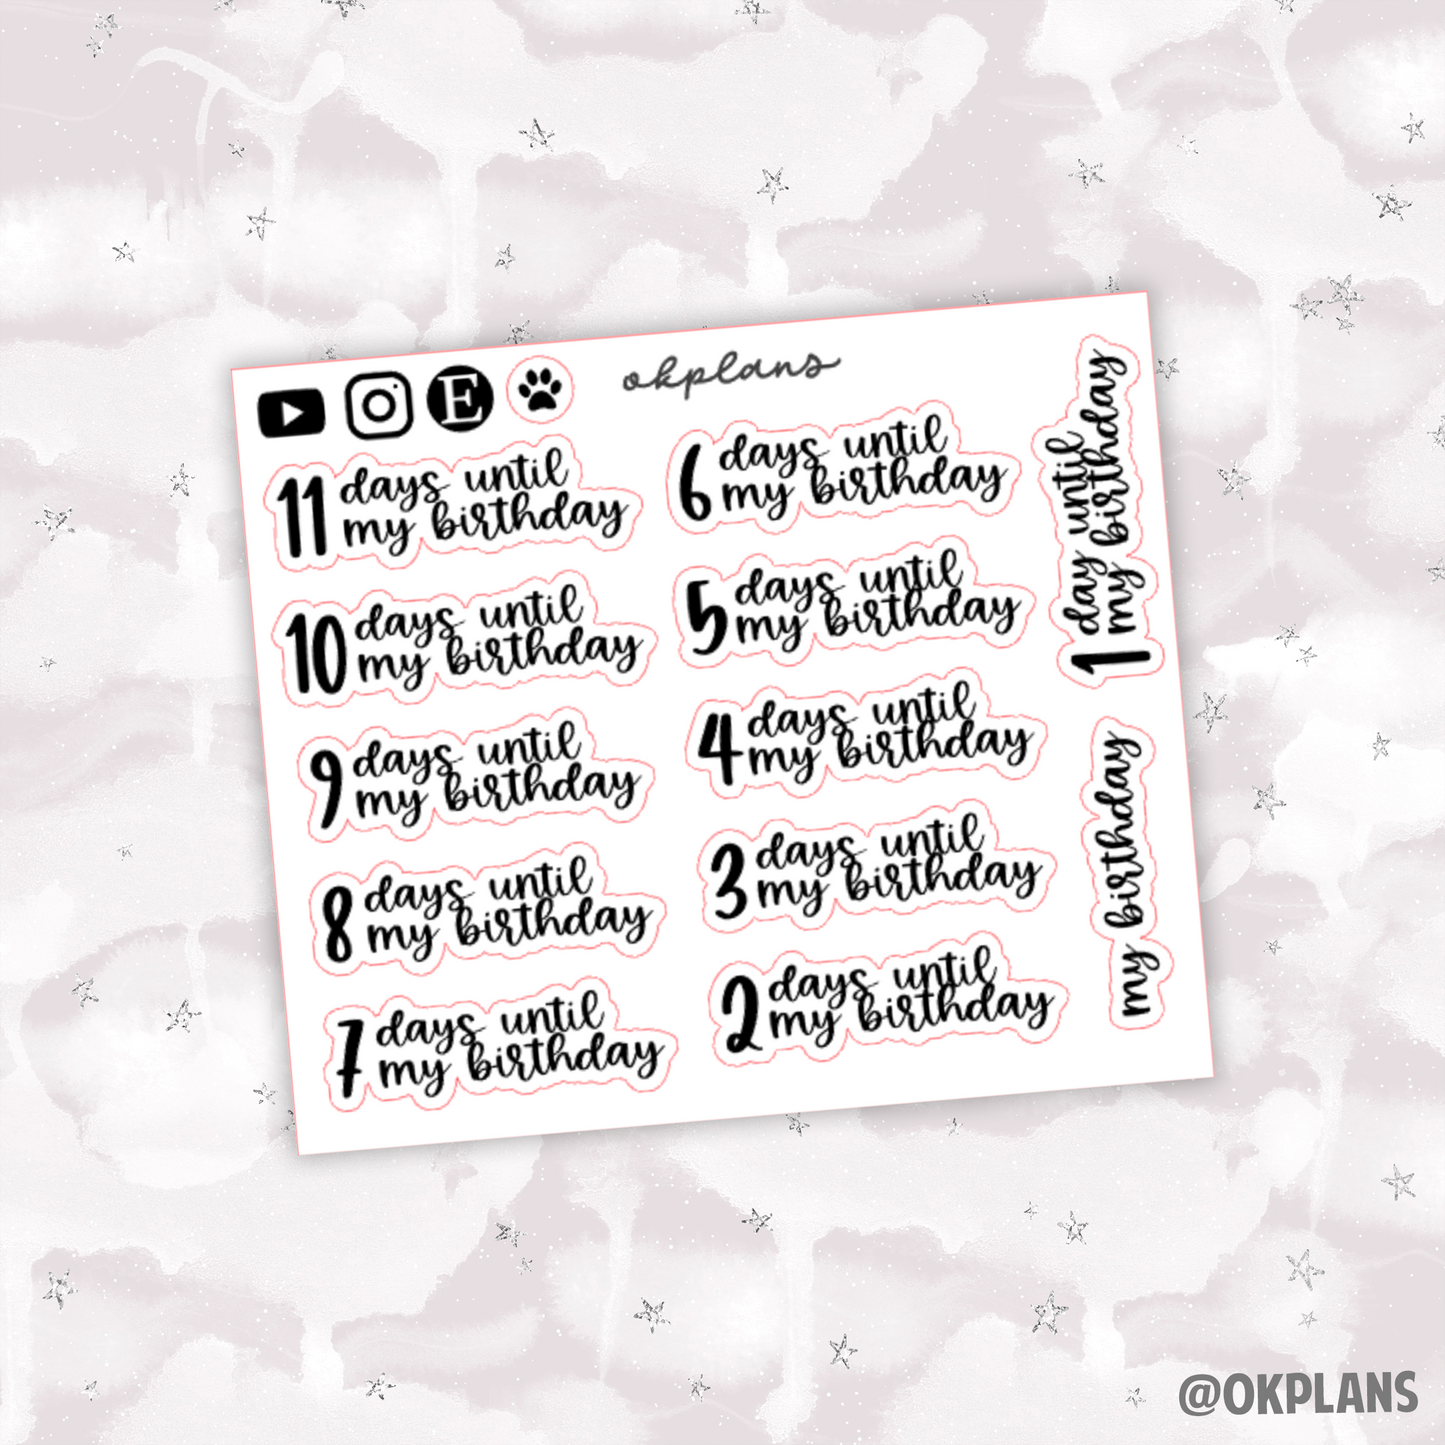 okplans
11 days until
my birthday
10 days until
my birthday
9 days until
my birthday
8 days until
my birthday
7 days until
my birthday
6 days until
my birthday
5 days until
my birthday
4 days until
my birthday
3 days until
my birthday
2 days until
my birthday
1 day until
my birthday
my birthday
E
@OKPLANS